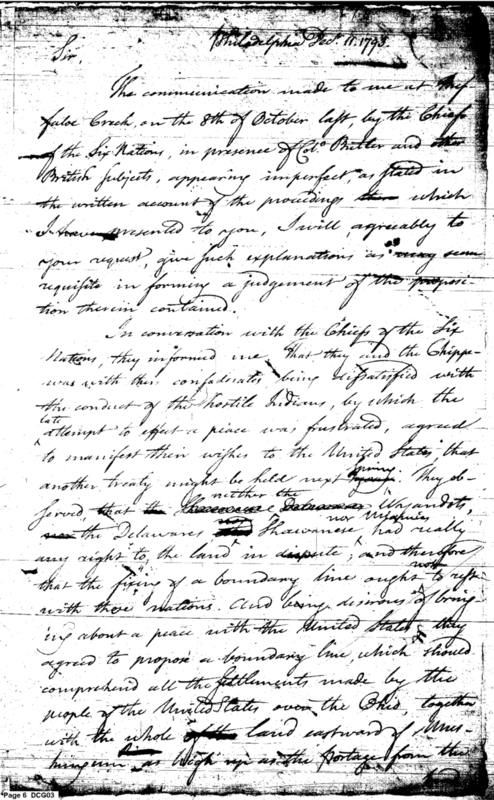 Philadelphia Decr. 11. 1793
Sir,
The communication made to me at Buf
faloe Creek, on the 8th of October last, by the Chiefs
of the Six Nations, in presence of Colo. Butler and other
British subjects, appearing imperfect, as stated in
the written account of the proceedings which
I presented to you, I will, agreeably to
your request, give such explanations as may seem
requisite in forming a judgement of the proposi
tion therein contained.
In conversation with the Chiefs of the Six
Nations, they informed me, that they and the Chippe-
was with their confederates, being dissatisfied with
the conduct of the hostile Indians, by which the
late
attempt to effect a peace was frustrated, agreed
to manifest their wishes to the United States, that
another treaty might be held next spring. They ob-
neither the
served, that the Delawares Wyandots,
nor nor
the Delawares Shawanese had really
any right to the land in dispute; and therefore
not
that the fixing of a boundary line ought to rest
with those nations. And being desirous of bring
ing about a peace with the United States, they
agreed to propose a boundary line, which should
comprehend all the settlements made by the
people of the United States over the Ohio, together
with the whole of the land eastward of Mus-
kingum, as high up as the portage from the
Page 6 DCG03